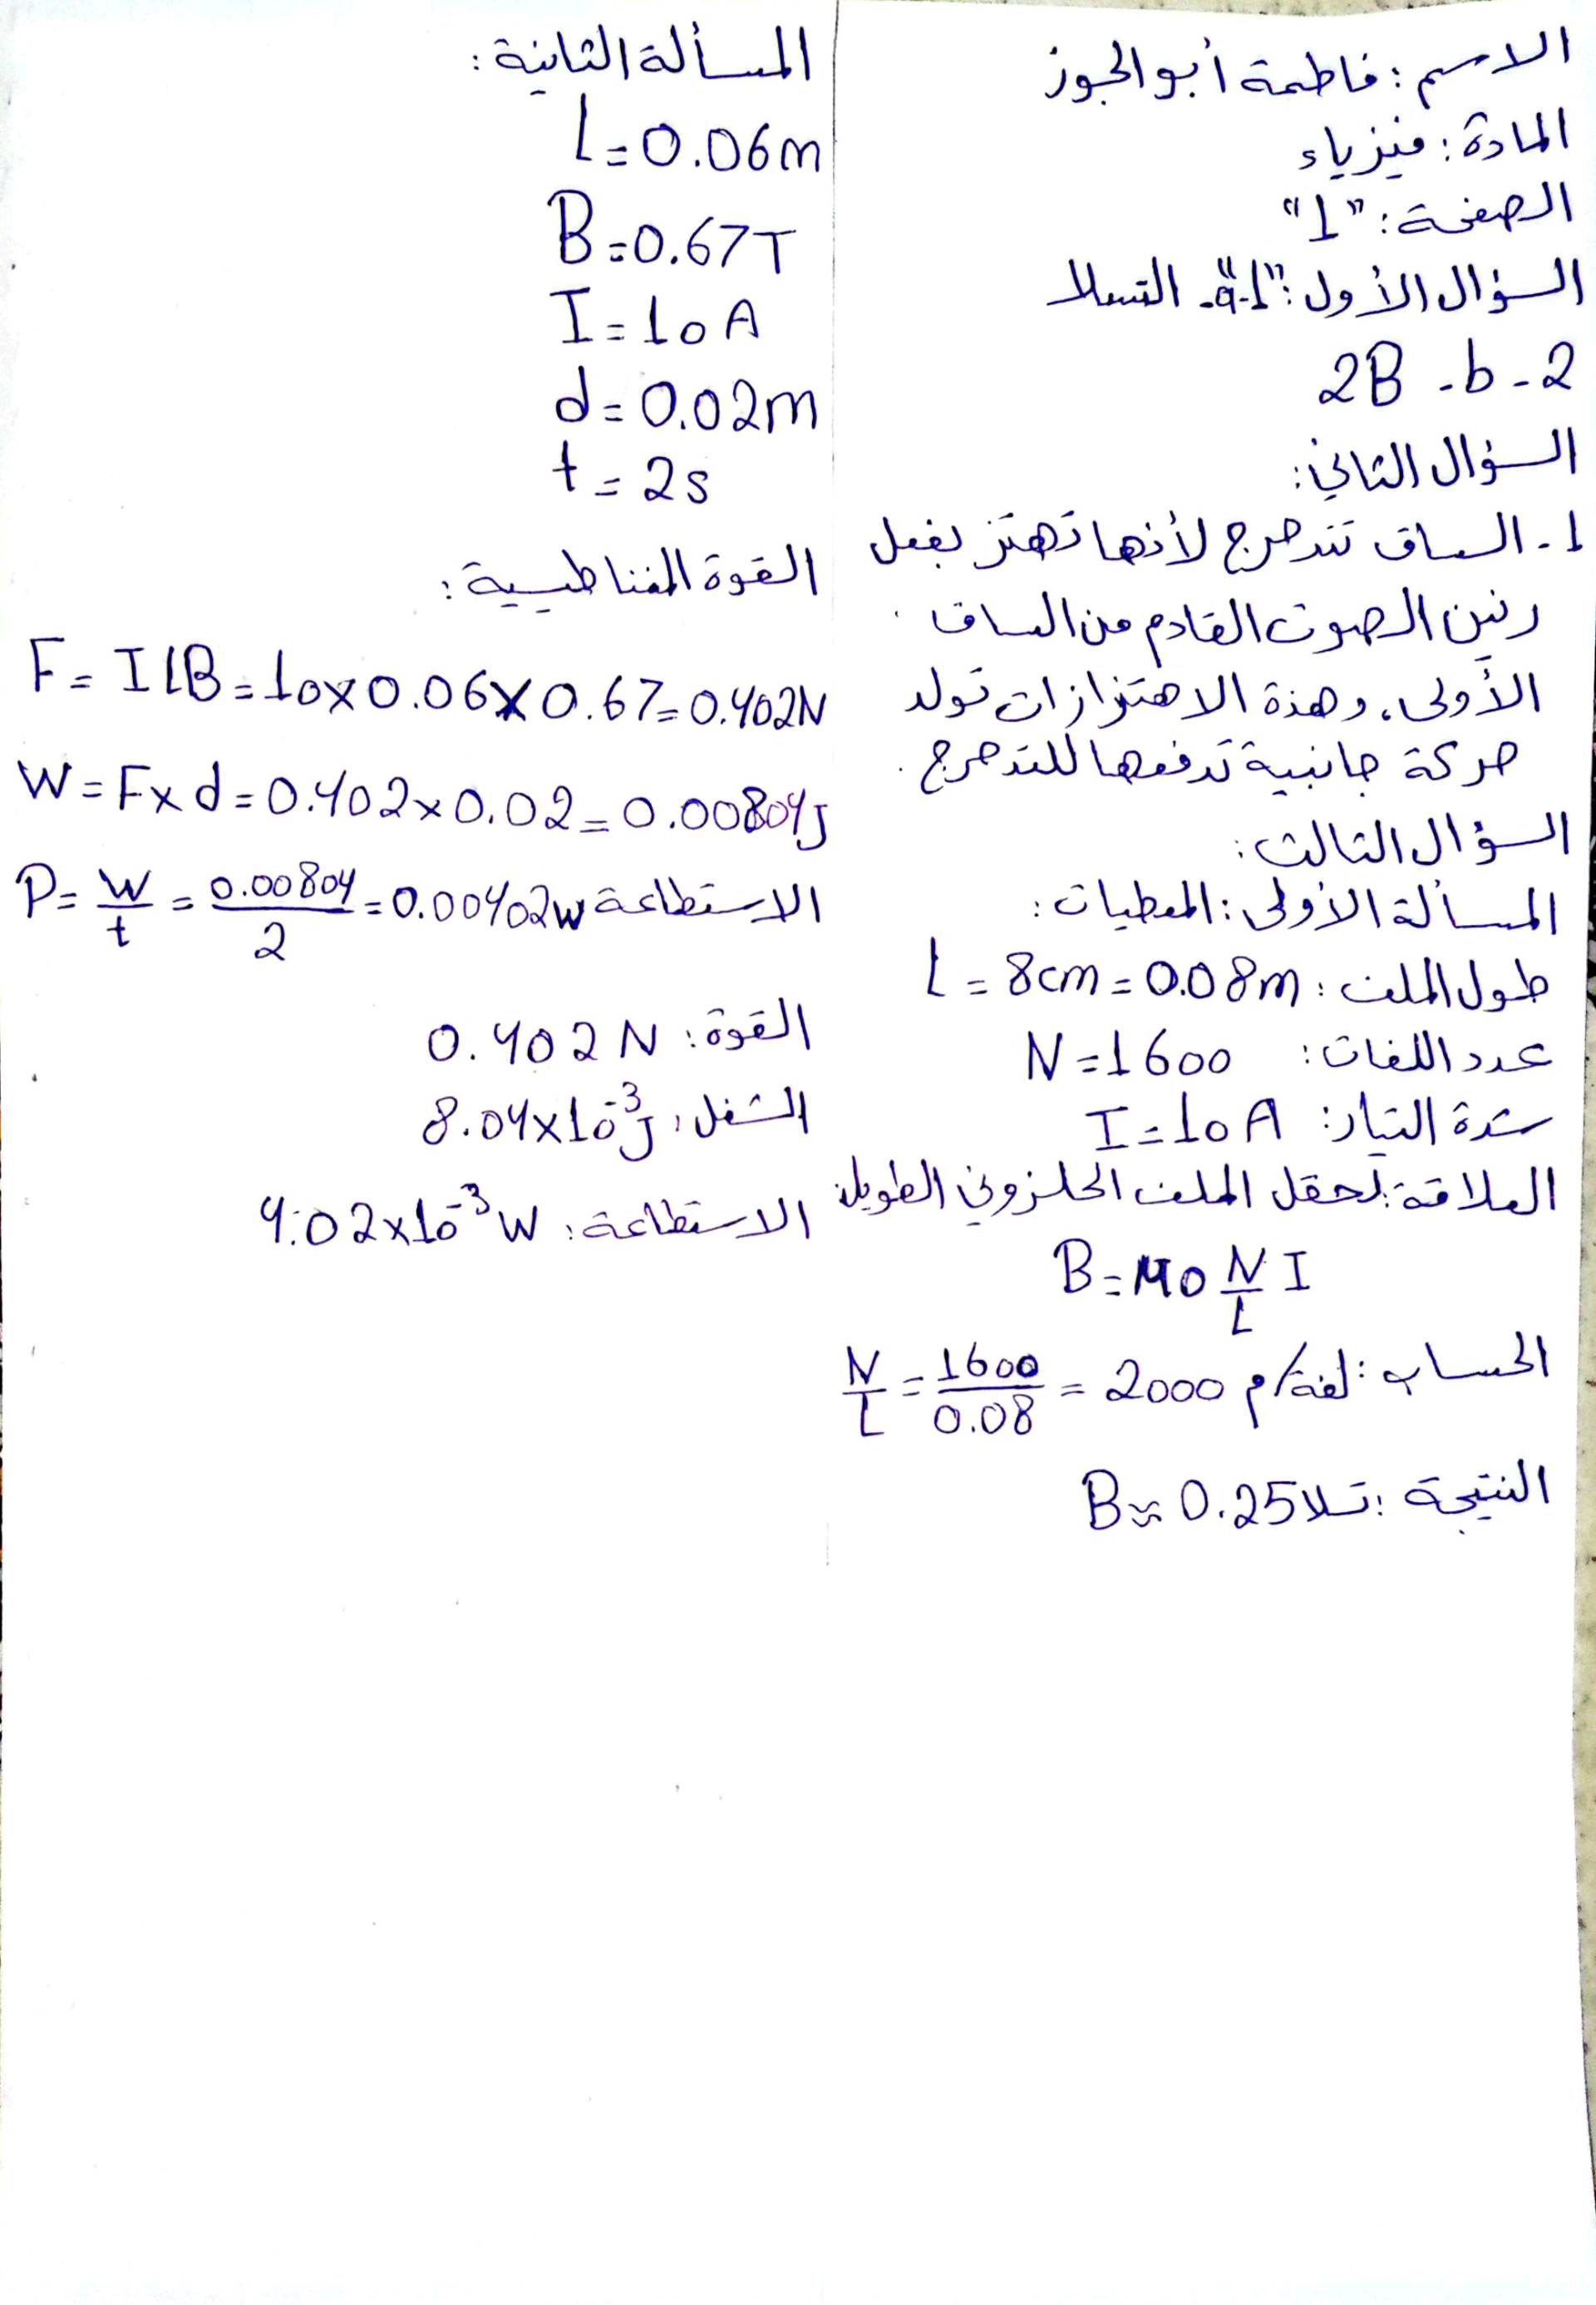 الاسم: فاطمة أبو الجوز
المادة: فيزياء
الصفحة: "1"
السؤال الأول: "1-a". التسلا
2 - b - 2B
السؤال الثاني:
1- الساق تتدحرج لأنها تهتز بفعل
رنين الصوت القادم من الساق
الأولى، وهذة الاهتزازات تولد
حركة جانبية تدفعها للتدحرج.
السؤال الثالث:
المسألة الأولى: المعطيات:
طول الملف: L = 8cm = 0.08m
عدد اللفات: N = 1600
شدة التيار: I = 10A
العلاقة: لحقل الملف الحلزوني الطويل
B = M0 N/L I
الحساب: N/L = 1600/0.08 = 2000 لفة/م
النتيجة: B ≈ 0.25 تسلا
المسألة الثانية:
L = 0.06m
B = 0.67T
I = 10A
d = 0.02m
t = 2s
القوة المغناطيسية:
F = ILB = 10 × 0.06 × 0.67 = 0.402N
W = F × d = 0.402 × 0.02 = 0.00804J
P = W/t = 0.00804/2 = 0.00402W الاستطاعة
القوة: 0.402N
الشغل: 8.04×10⁻³J
الاستطاعة: 4.02×10⁻³W